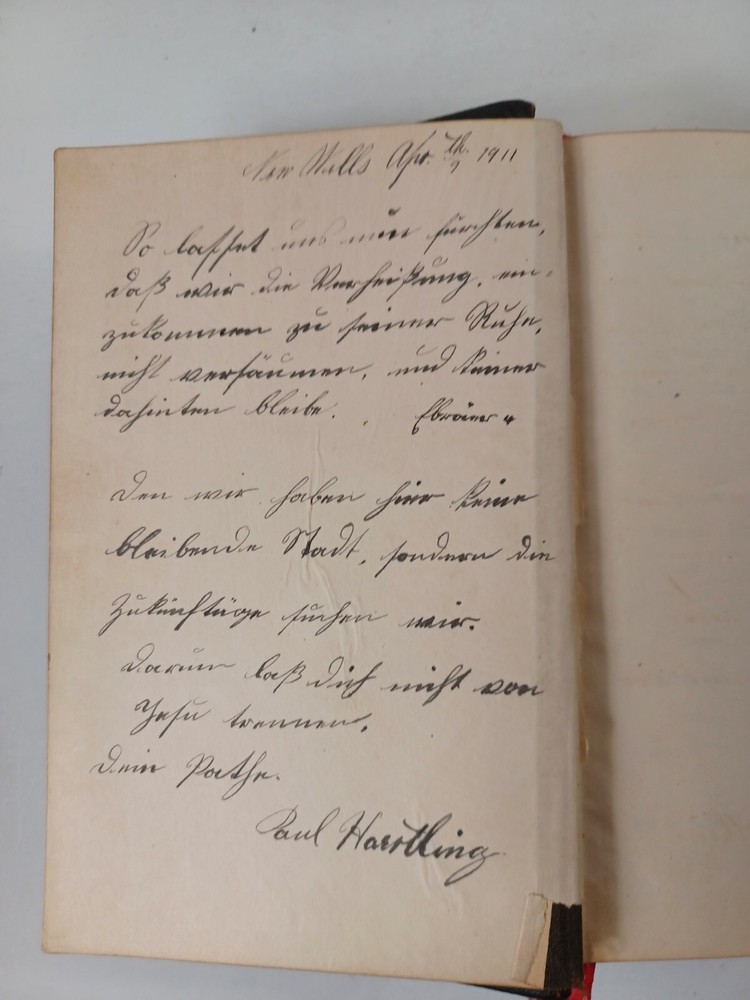 New Wells Apr. 9th. 1911
So lasset uns nun fürchten,
daß wir die Verheißung, ein-
zukommen zu seiner Ruhe,
nicht versäumen, und keiner
dahinten bleibe. Ebräer 4
Den wir haben hier keine
bleibende Stadt, sondern die
Zukünftüge suchen wir.
Darum laß dich nicht von
Jesu trennen.
Dein Pathe.
Paul Haertling